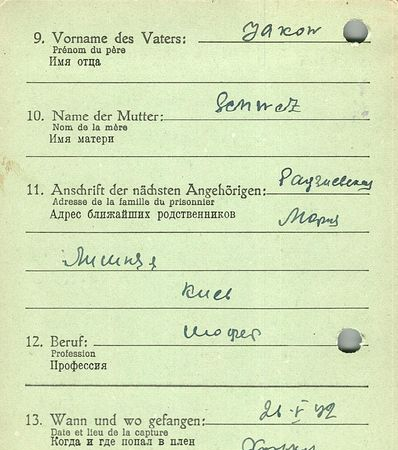 9. Vorname des Vaters: Jakow
Prénom du père
Имя отца
10. Name der Mutter: Schwetz
Nom de la mère
Имя матери
11. Anschrift der nächsten Angehörigen:
Adresse de la famille du prisonnier
Адрес ближайших родственников Мария
Киев
12. Beruf: шофер
Profession
Профессия
13. Wann und wo gefangen: 26-V 42
Date et lieu de la capture
Когда и где попал в плен